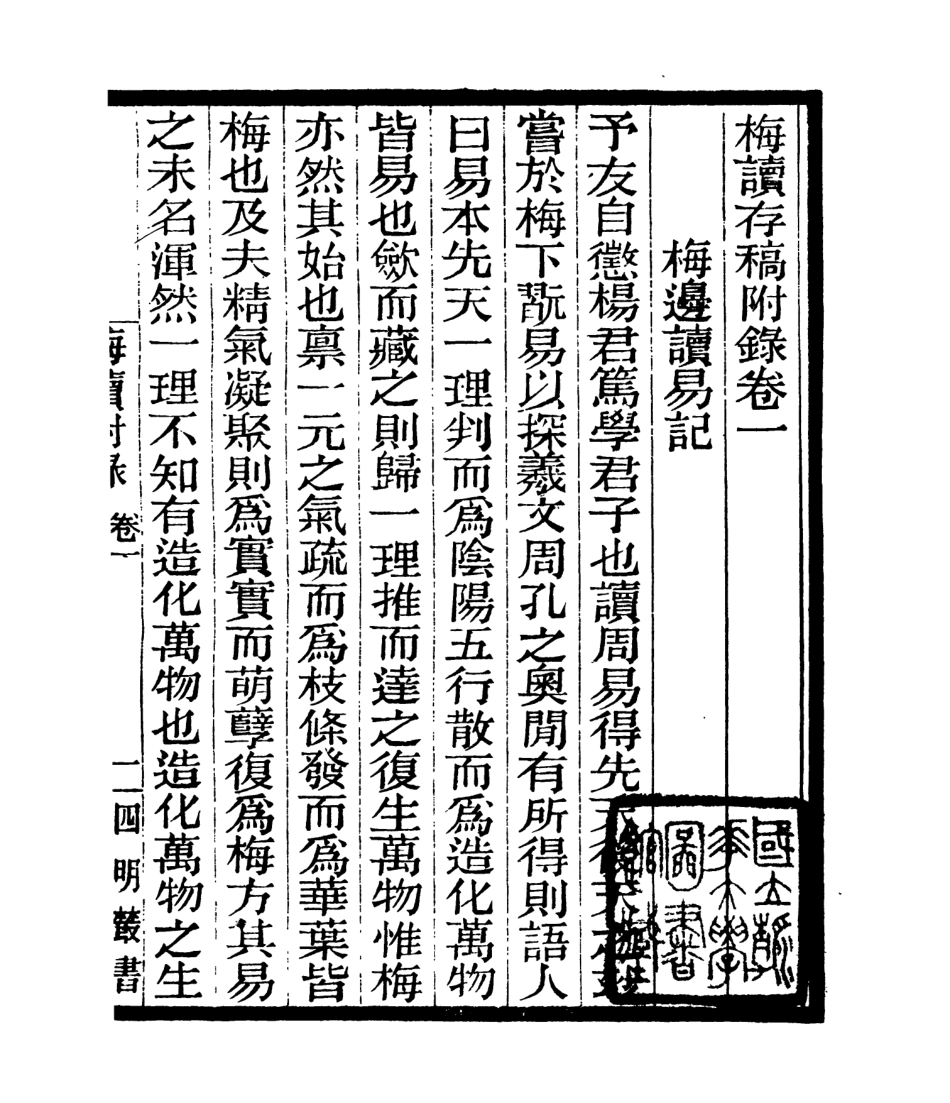 梅讀存稿附錄卷一
梅邊讀易記
予友自懲楊君篤學君子也讀周易得先天後天之
嘗於梅下翫易以探羲文周孔之奧閒有所得則語人
曰易本先天一理判而爲陰陽五行散而爲造化萬物
皆易也歛而藏之則歸一理推而達之復生萬物惟梅
亦然其始也禀一元之氣疏而爲枝條發而爲華葉皆
梅也及夫精氣凝聚則爲實實而萌孽復爲梅方其易
之未名渾然一理不知有造化萬物也造化萬物之生
梅讀附錄 卷一 一 四明叢書
國立
大學
圖書
館